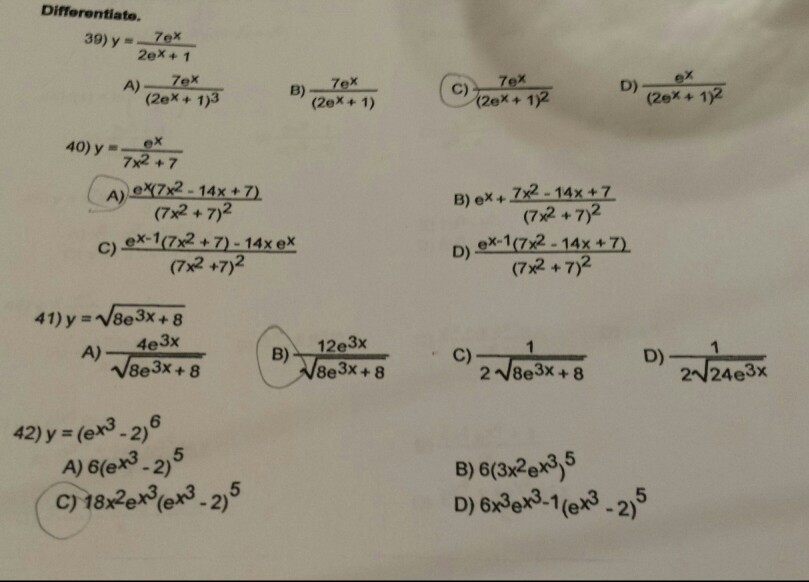 Differentiate.
39) y = 7eˣ / (2eˣ + 1)
A) 7eˣ / (2eˣ + 1)³ B) 7eˣ / (2eˣ + 1) C) 7eˣ / (2eˣ + 1)² D) eˣ / (2eˣ + 1)²
40) y = eˣ / (7x² + 7)
A) eˣ(7x² - 14x + 7) / (7x² + 7)² B) eˣ + (7x² - 14x + 7) / (7x² + 7)²
C) (eˣ⁻¹(7x² + 7) - 14x eˣ) / (7x² + 7)² D) eˣ⁻¹(7x² - 14x + 7) / (7x² + 7)²
41) y = √(8e^(3x) + 8)
A) 4e^(3x) / √(8e^(3x) + 8) B) 12e^(3x) / √(8e^(3x) + 8) C) 1 / (2√(8e^(3x) + 8)) D) 1 / (2√(24e^(3x)))
42) y = (e^(x³) - 2)⁶
A) 6(e^(x³) - 2)⁵ B) 6(3x²e^(x³))⁵
C) 18x²e^(x³)(e^(x³) - 2)⁵ D) 6x³e^(x³-1)(e^(x³) - 2)⁵